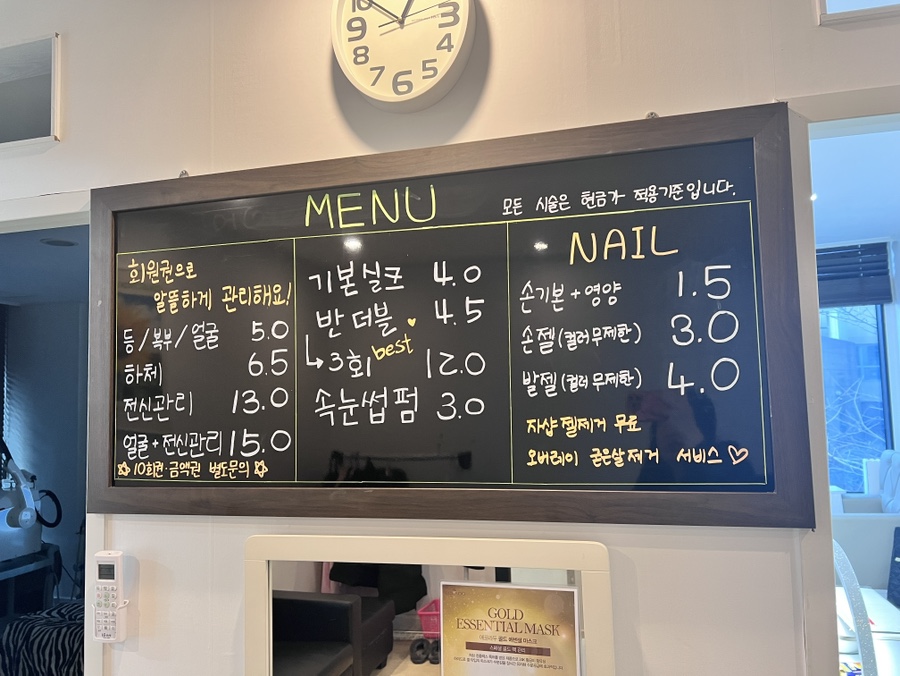 10
9
8
7
6
5
4
3
MENU
모든 시술은 현금가 적용기준입니다.
회원권으로
알뜰하게 관리해요!
등/복부/얼굴 5.0
하체 6.5
전신관리 13.0
얼굴+전신관리 15.0
10회권 금액권 별도문의
기본실크 4.0
반더블 4.5
↳3회 best 12.0
속눈썹펌 3.0
NAIL
손기본+영양 1.5
손젤(컬러무제한) 3.0
발젤(컬러무제한) 4.0
자샵 젤제거 무료
오버레이 굳은살제거 서비스♡
GOLD
ESSENTIAL MASK